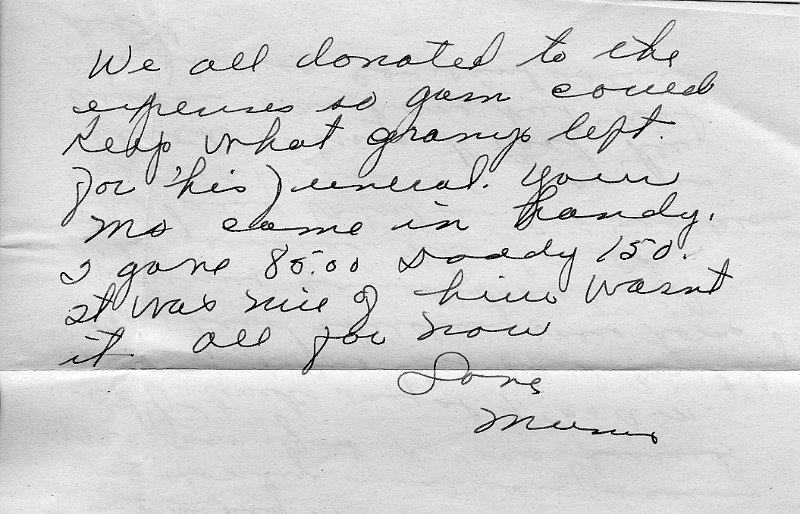 We all donated to the
expenses so gam could
keep what gramps left
for his funeral. your
mo came in handy.
I gave 85.00 Daddy 150.
it was nice of him wasnt
it. all for now
Love
Mums